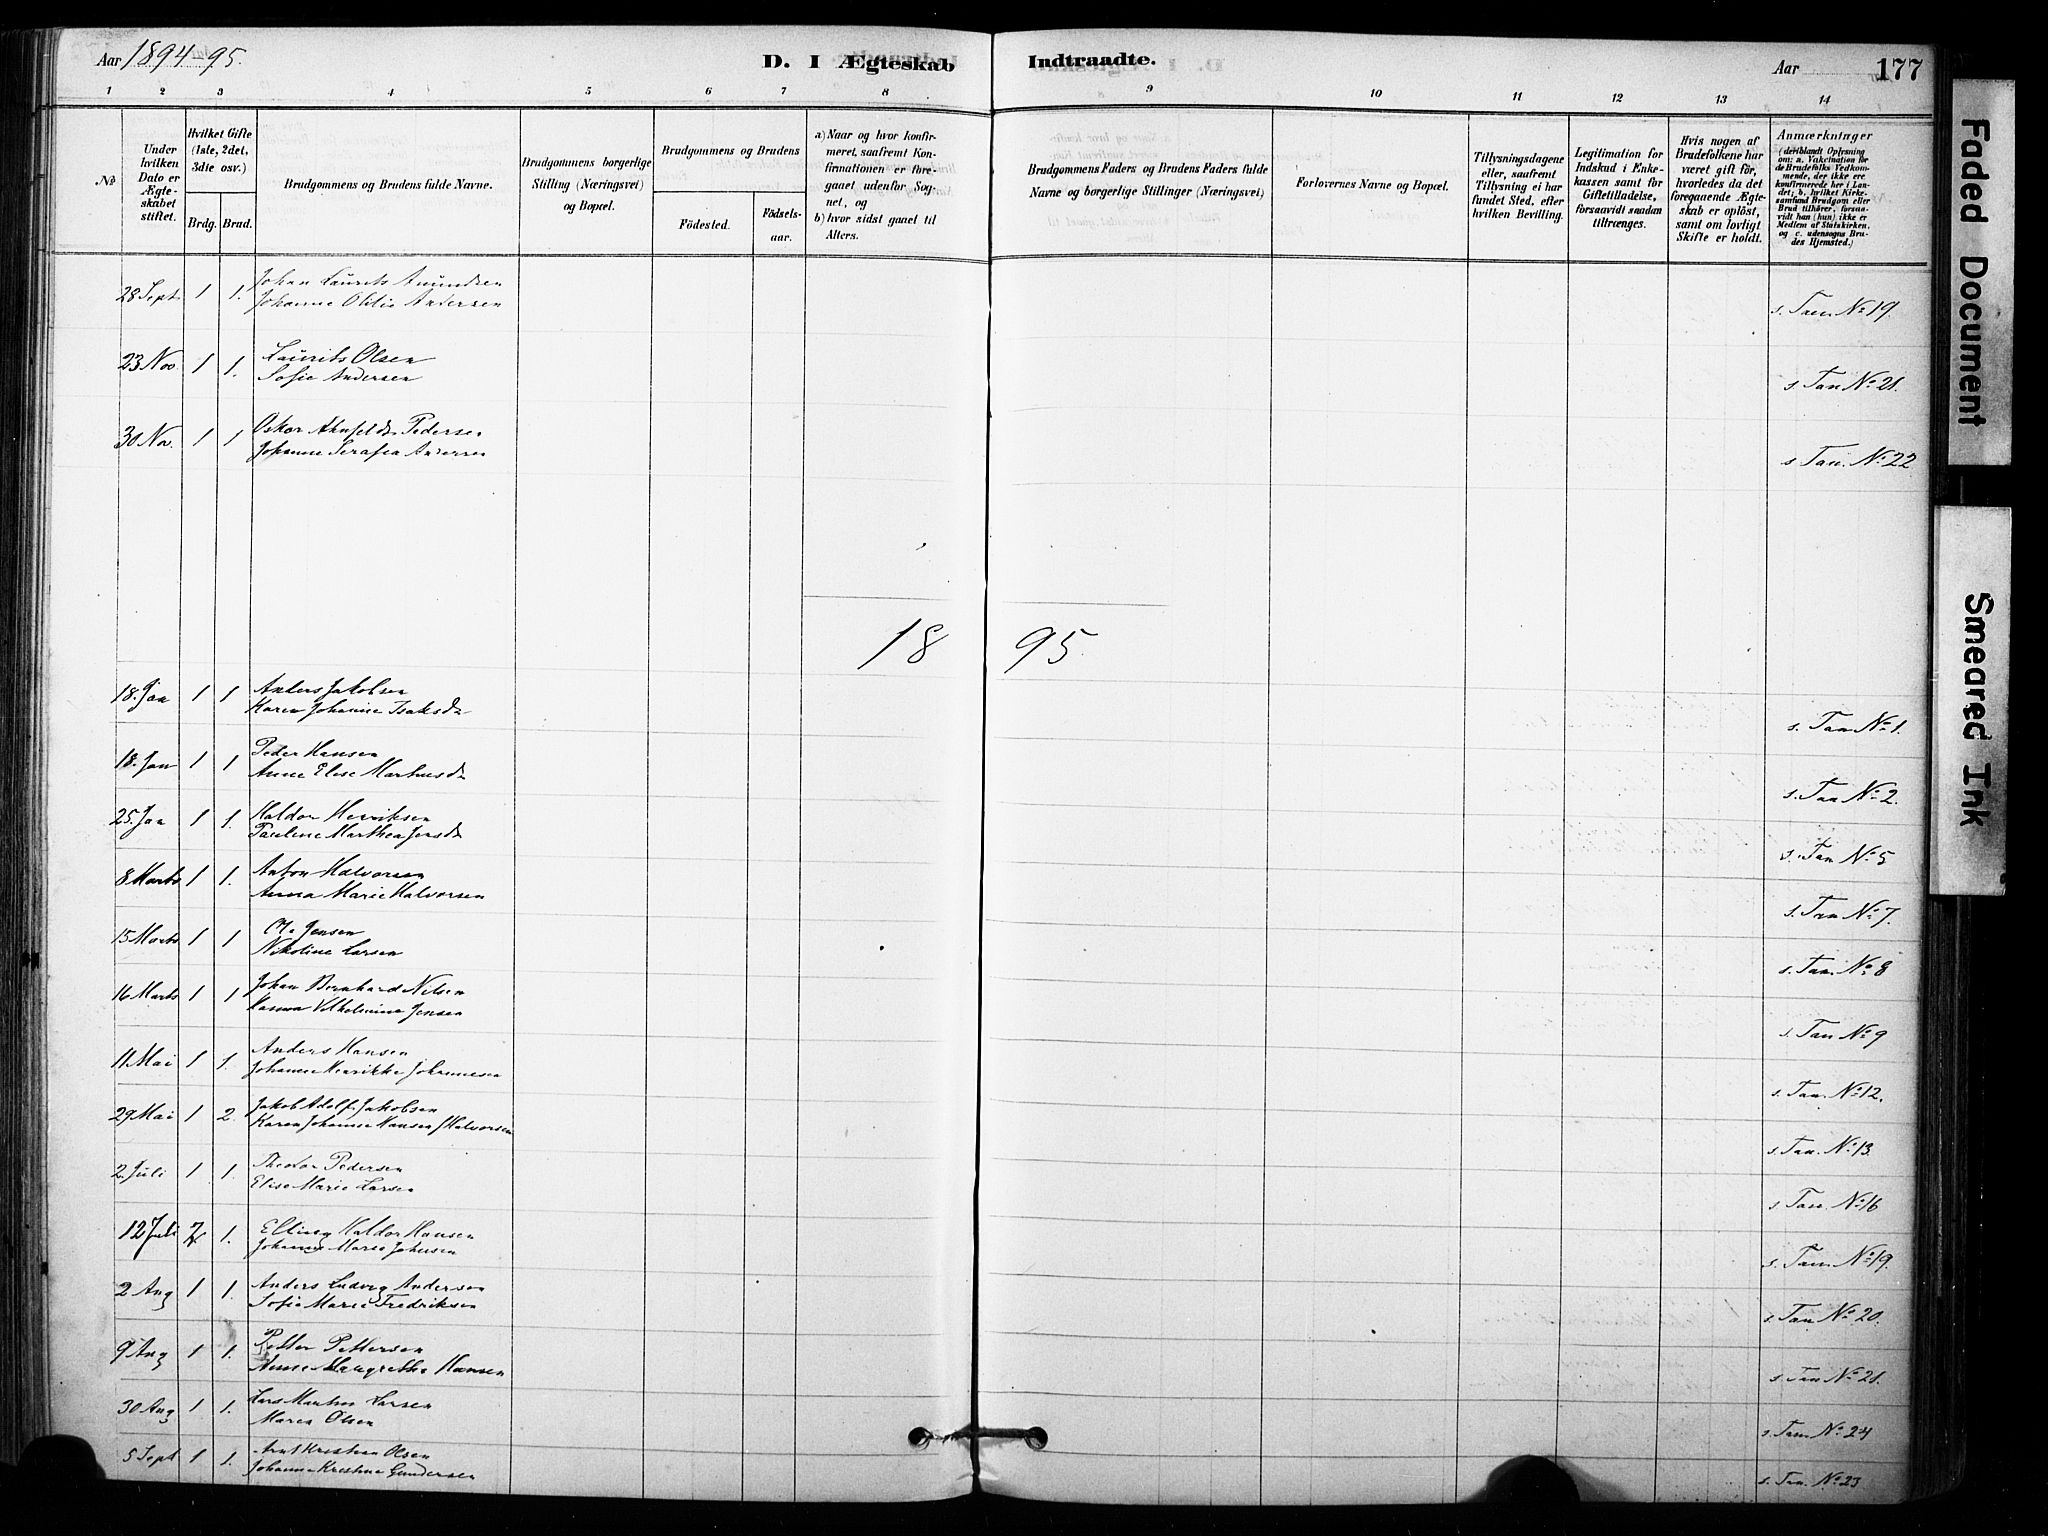 Aar 1894-95.
D. I Ægteskab Indtraadte.
Aar 177
1 2 3 4 5 6 7 8 9 10 11 12 13 14
No
Under hvilken Dato er Ægteskabet stiftet.
Hvilket Gifte (1ste, 2det, 3die osv.)
Brdg. Brud.
Brudgommens og Brudens fulde Navne.
Brudgommens borgerlige Stilling (Næringsvei) og Bopæl.
Brudgommens og Brudens
Födested.
Födselsaar.
a) Naar og hvor konfirmeret, saafremt Konfirmationen er foregaaet udenfor Sognet, og
b) hvor sidst gaaet til Alters.
Brudgommens Faders og Brudens Faders fulde Navne og borgerlige Stillinger (Næringsvei)
Forlovernes Navne og Bopæl.
Tillysningsdagene eller, saafremt Tillysning ei har fundet Sted, efter hvilken Bevilling.
Legitimation for Indskud i Enkekassen samt for Giftetilladelse, forsaavidt saadan tiltrænges.
Hvis nogen af Brudefolkene har været gift för, hvorledes da det foregaaende Ægteskab er oplöst, samt om lovligt Skifte er holdt.
Anmærkninger (deriblandt Oplysning om: a. Vakcination for de Brudefolks Vedkommende, der ikke ere konfirmerede her i Landet; b. hvilket Kirkesamfund Brudgom eller Brud tilhører, forsaavidt han (hun) ikke er Medlem af Statskirken, og c. udensogns Brudes Hjemsted.)
28 Sept 1 1. Johan Laurits Amundsen
Johanne Otilie Andersen s. Tan. No 19.
23 Nov. 1 1. Laurits Olsen
Sofie Andersen s. Tan No 21.
30 Nov. 1 1 Oskar Ahnfeldt Pedersen
Johanne Serafia Andersen s. Tan. No 22
18 95.
18. Jan 1 1 Anders Jakobsen
Karen Johanne Isaksdr s. Tan No 1.
18. Jan 1 1 Peder Hansen
Anne Elise Marthinsdr s. Tan No 2.
25. Jan 1 1. Haldor Henriksen
Pauline Marthea Jensdr s. Tan No 5
8 Marts 1 1. Anton Halvorsen
Anna Marie Halvorsen s. Tan No 7.
15 Marts 1 1 Ole Jensen
Nikoline Larsen s. Tan. No 8
16 Marts 1 1 Johan Bernhard Nilsen
Hanna Vilhelmine Jensen s. Tan No 9
11 Mai 1 1. Anders Hansen
Johanne Henrikke Johannesen s. Tan. No 12.
29 Mai 1 2. Jakob Adolf Jakobsen
Karen Johanne Hansen f Halvorsen s. Tan. No 13.
2. Juli 1 1. Theodor Pedersen
Elise Marie Larsen s. Tan No 16
12 Juli 1. Elling Haldor Hansen
Johanne Marie Johnsen s. Tan. No 19.
2 Aug 1 1. Anders Ludvig Andersen
Sofie Marie Fredriksen s. Tan No 20.
9 Aug 1 1. Petter Pettersen
Anne Margrethe Hansen s. Tan No 21.
30 Aug 1 1. Lars Martin Larsen
Maren Olsen s. Tan No 24
5 Sept 1 1. Arnt Kristian Olsen
Johanne Kristine Gundersen s. Tan. No 23
Faded Document
Smeared Ink